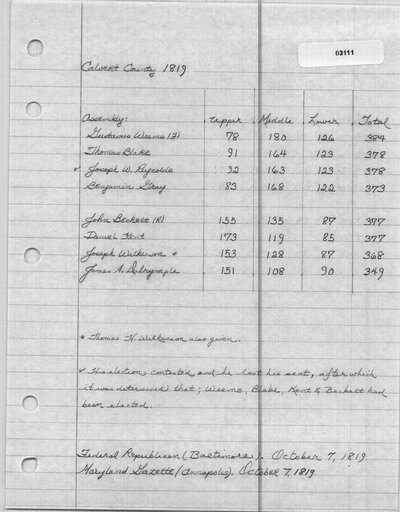 03111
Calvert County 1819
Assembly: Upper Middle Lower Total
Gustavus Weems (F) 78 180 126 384
Thomas Blake 91 164 123 378
✓ Joseph W. Reynolds 92 163 123 378
Benjamin Gray 83 168 122 373
John Beckett (R) 155 135 87 377
Daniel Kent 173 119 85 377
Joseph Wilkinson * 153 128 87 368
James A. Dalrymple 151 108 90 349
* Thomas H. Wilkinson also given.
✓ His election contested and he lost his seat, after which
it was determined that; Weems, Blake, Kent & Beckett had
been elected.
Federal Republican (Baltimore). October 7, 1819
Maryland Gazette (Annapolis). October 7, 1819